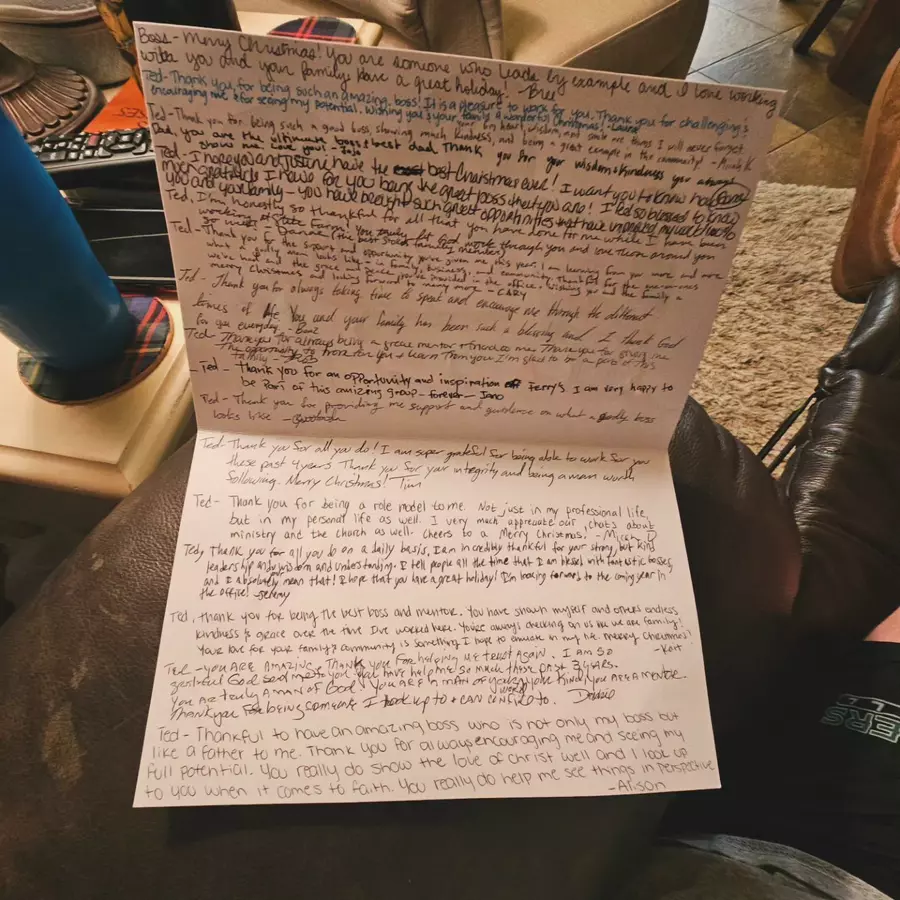 Boss - Merry Christmas! You are someone who leads by example and I love working
with you and your family. Have a great holiday! - Bree
Ted - Thank you for being such an amazing boss! It is a pleasure to work for you. Thank you for challenging
encouraging me & for seeing my potential. Wishing you & your family a wonderful Christmas! - Laura
Ted - Thank you for being such a good boss, showing much kindness, and being a great example in the community! - Micah K
your heart, wisdom, and smile are things I will never forget
Dad, you are the ultimate boss & best dad. Thank you for your wisdom & kindness you always
show me. Love you! - Jojo
Ted - I hope you and Justine have the best Christmas ever! I want you to know how
much gratitude I have for you being the great boss that you are! I feel so blessed to know
you and your family - you have brought such great opportunities that have impacted my
Ted, I'm honestly so thankful for all that you have done for me while I have been
working at State Farm! You truly let God work through you and
(the best stock family member)
Ted - Thank you for the support and opportunity you've given me this year, I am learning from you more and more
what a godly man looks like - in family, business, and community. Thankful for the
we've had and the grace and peace you've provided in the office. Wishing you and the family a
merry Christmas and looking forward to many more - CARY
Ted - Thank you for always taking time to speak and encourage me through the different
times of life. You and your family has been such a blessing and I thank God
for you everyday. - Boaz
Ted - Thank you for always being a great mentor + friend to me. Thank you for giving me
the opportunity to work for you + learn from you. I'm glad to be a part of this
family
Ted - Thank you for an opportunity and inspiration Terry's I am very happy to
be part of this amazing group - forever - Jano
Ted - Thank you for providing me support and guidance on what a godly boss
looks like
Ted - Thank you for all you do! I am super grateful for being able to work for you
these past 4 years. Thank you for your integrity and being a man worth
following. Merry Christmas! Tim
Ted - Thank you for being a role model to me. Not just in my professional life,
but in my personal life as well. I very much appreciate our chats about
ministry and the church as well. Cheers to a Merry Christmas. - Micah D
Ted, Thank you for all you do on a daily basis, I am incredibly thankful for your strong, but kind
leadership and wisdom and understanding. I tell people all the time that I am blessed with fantastic bosses,
and I absolutely mean that! I hope that you have a great holiday! I'm looking forward to the coming year in
the office! - Jeremy
Ted, thank you for being the best boss and mentor. You have shown myself and others endless
kindness & grace over the time I've worked here. You're always checking on us like we are family!
Your love for your family & community is something I hope to emulate in my life. Merry Christmas!
- Kort
Ted - you ARE AMAZING. Thank you for helping me trust again. I am so
grateful God send me to you. You have help me so much these past 3 years.
You are truly a man of God. You are a man of your word, you kind, you are a mentor.
Thank you for being someone I look up to & can confide to. Debbie
Ted - Thankful to have an amazing boss who is not only my boss but
like a father to me. Thank you for always encouraging me and seeing my
full potential. You really do show the love of christ well and I look up
to you when it comes to faith. You really do help me see things in perspective
- Alison